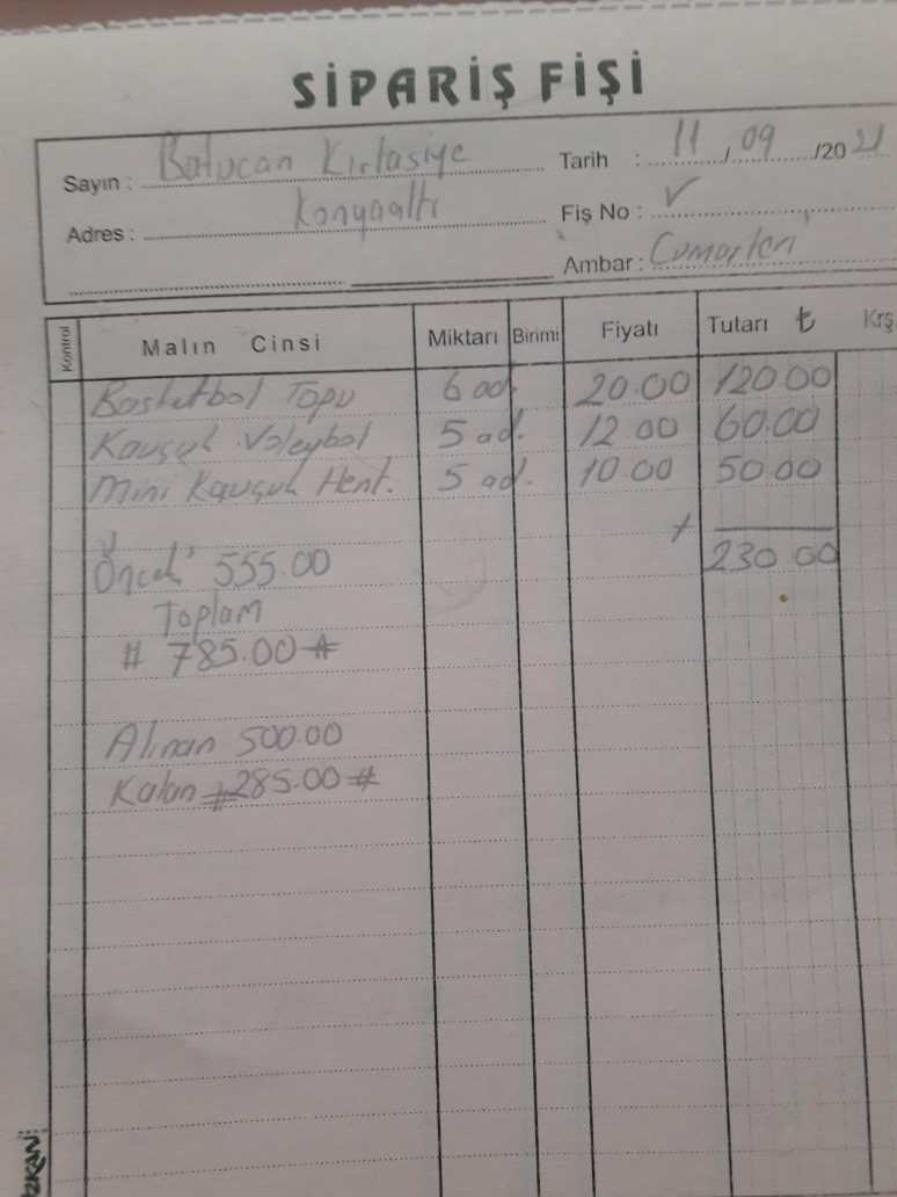 SİPARİŞ FİŞİ
Sayın : Batucan Kırtasiye
Tarih : 11/09/2021
Adres : Konyaaltı
Fiş No : ✓
Ambar : Cumartesi
Kontrol Malın Cinsi Miktarı Birimi Fiyatı Tutarı ₺ Krş
Basketbol Topu 6 ad. 20.00 120.00
Kauçuk Voleybol 5 ad. 12.00 60.00
Mini Kauçuk Hent. 5 ad. 10.00 50.00
+
Önceki 555.00 230.00
Toplam
# 785.00 #
Alınan 500.00
Kalan # 285.00 #